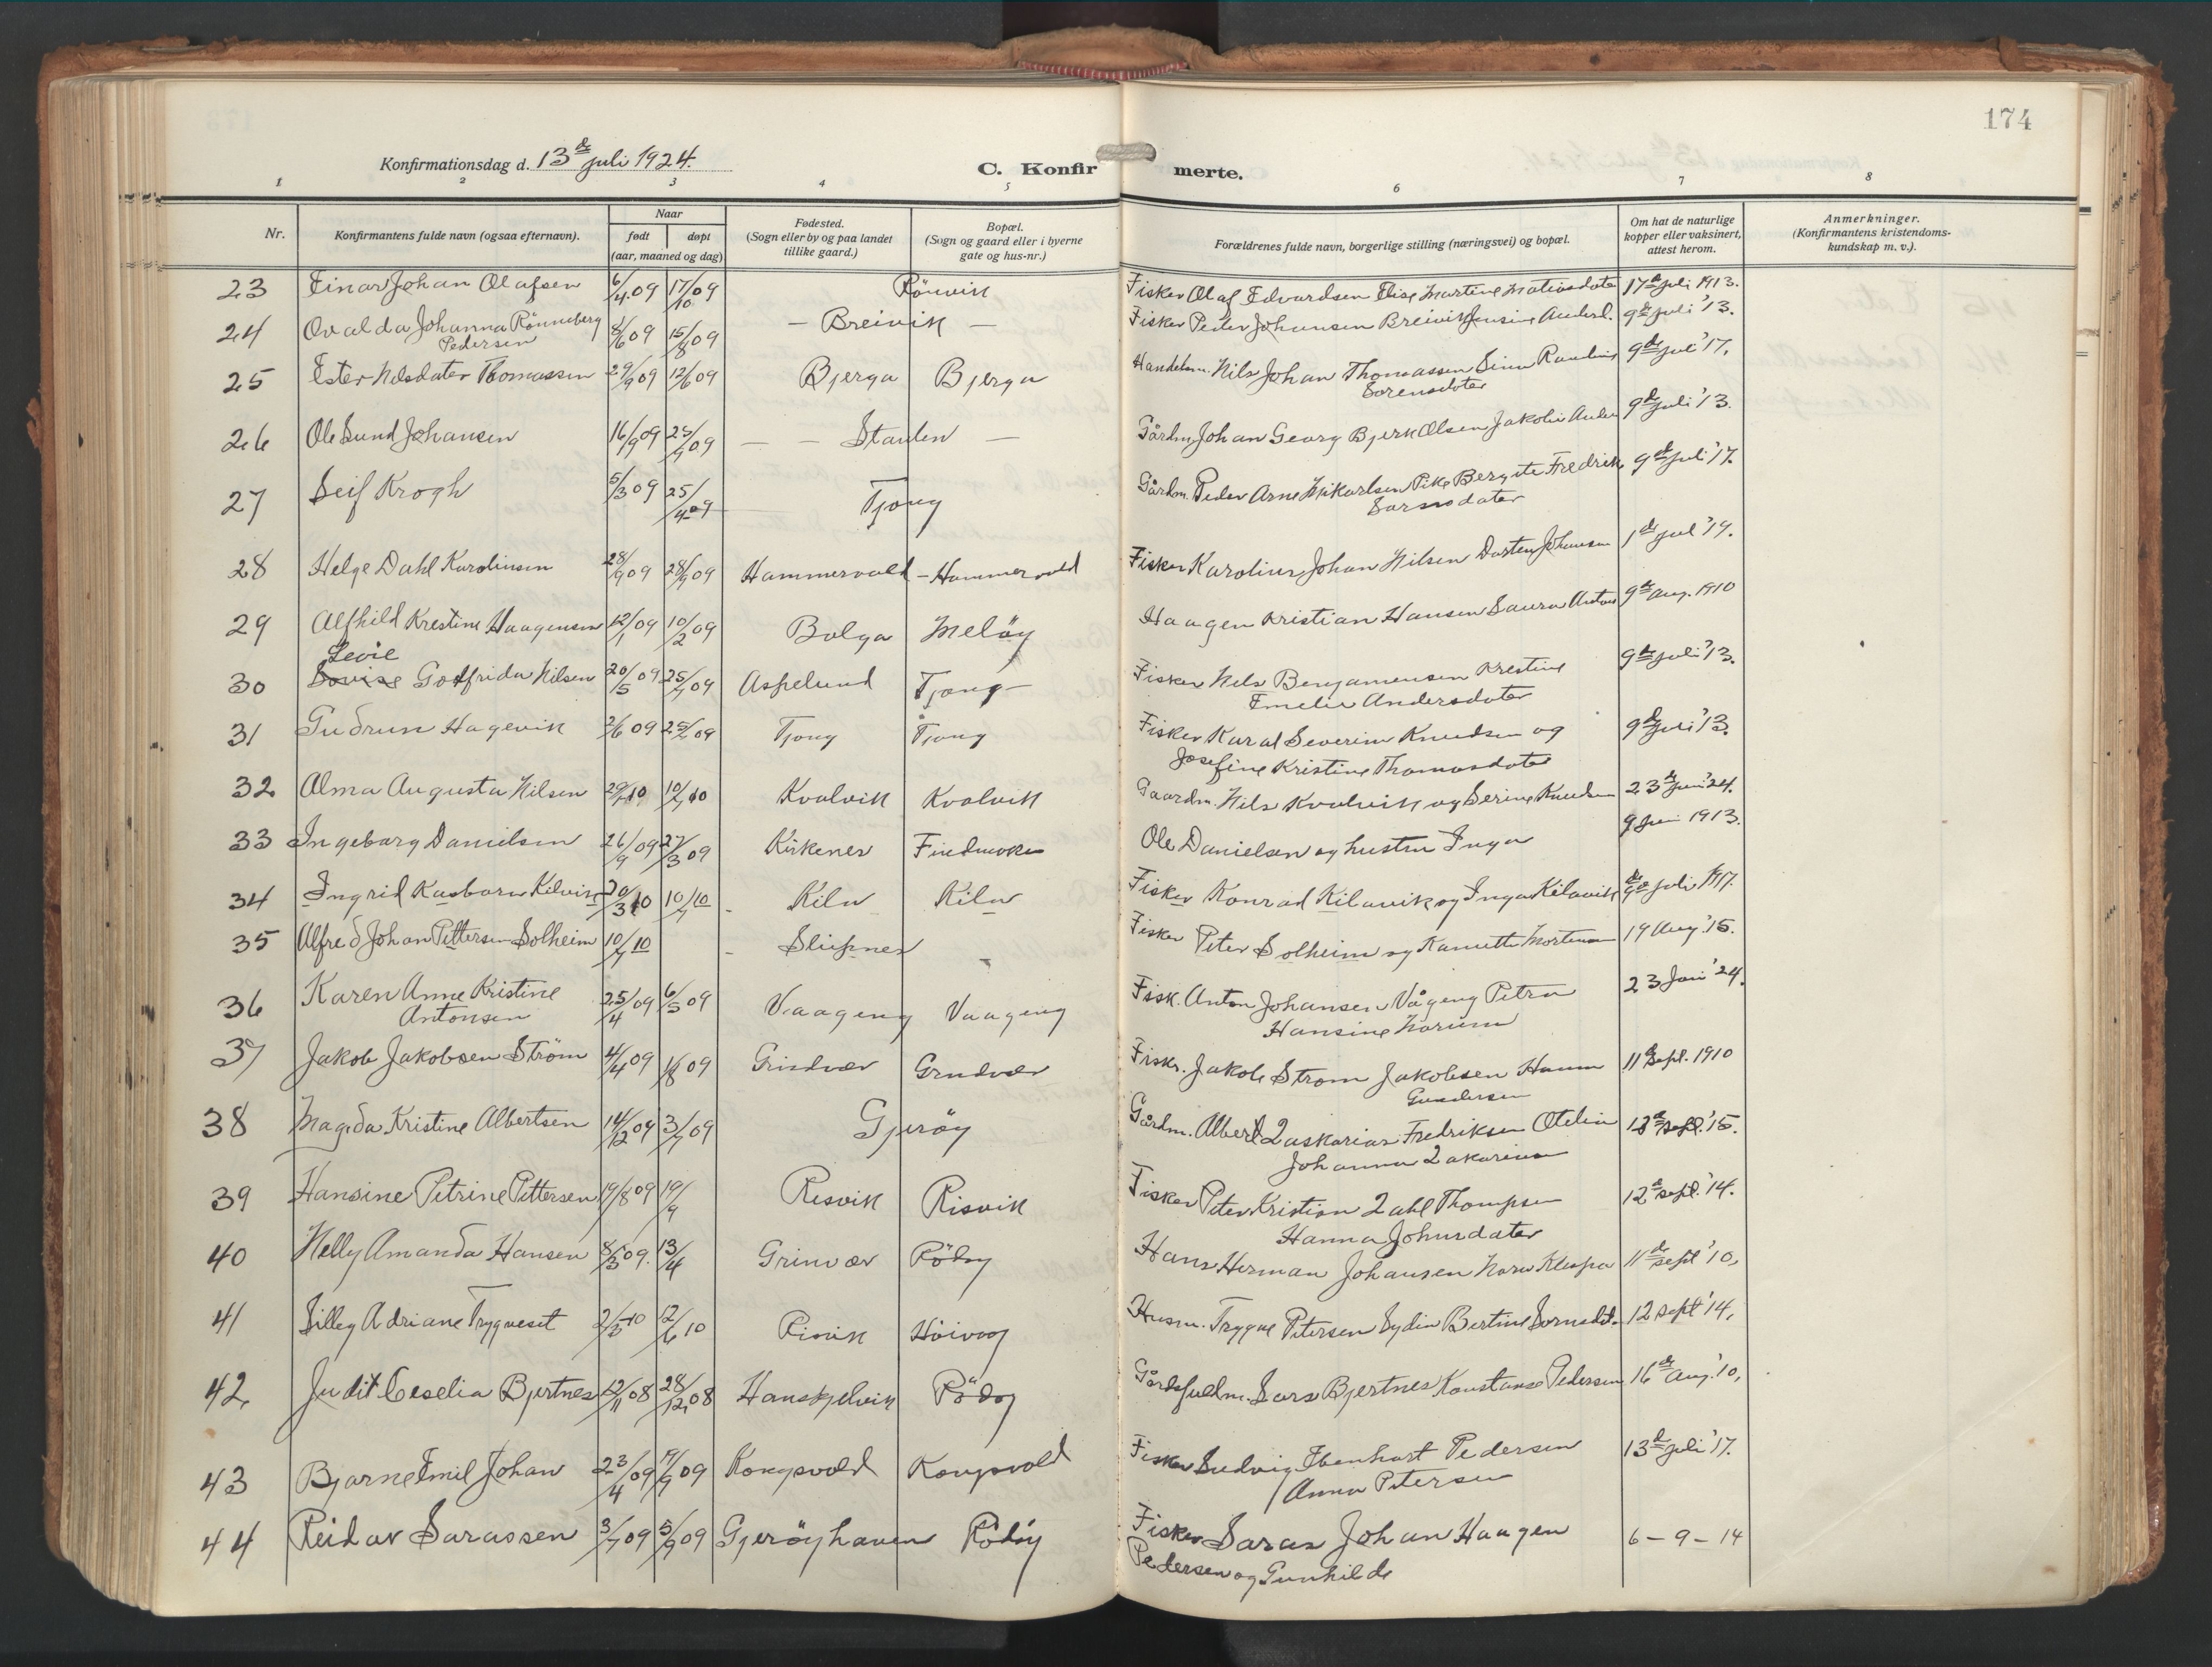 174
Konfirmationsdag d. 13de juli 1924.
C. Konfirmerte.
1 2 3 4 5 6 7 8
Nr.
Konfirmantens fulde navn (ogsaa efternavn).
Naar
født døpt
(aar, maaned og dag)
Fødested.
(Sogn eller by og paa landet
tillike gaard.)
Bopæl.
(Sogn og gaard eller i byerne
gate og hus-nr.)
Forældrenes fulde navn, borgerlige stilling (næringsvei) og bopæl.
Om hat de naturlige
kopper eller vaksinert,
attest herom.
Anmerkninger.
(Konfirmantens kristendoms-
kundskap m. v.).
23 Einar Johan Olafsen 6/4 09 17/10 09 Rönvik Fisker Olaf Edvardsen Elise Martine Matiasdater 17de juli 1913.
24 Ovalda Johanna Rönneberg 8/6 09 15/8 09 — Breivik — Fisker Peder Johansen Breivik Jensine Andersd. 9de juli '13.
Pedersen
25 Ester Nilsdater Thomassen 29/9 09 12/6 09 Bjerga Bjerga Handelsm. Nils Johan Thomassen 9de juli '17.
Sorensdater
26 Ole Sund Johansen 16/9 09 — — Stavlen — Gårdm. Johan Georg Bjerk Olsen Jakobie 9de juli '13.
27 Leif Krogh 5/3 09 25/4 09 Tjong Gårdm. Peder Arne Pike Bergite Fredrik 9de juli '17.
Larssdater
28 Helge Dahl Karolinsen 28/9 09 28/9 09 Hammervold - Hammervold Fisker Karolius Johan Nilsen Johansen 1de juli '19.
29 Alfhild Krestine Haagensen 12/1 09 10/2 09 Bolga Melöy Haagen Kristian Hansen Laura 9de aug. 1910
Levie
30 Lovise Godfrida Nilsen 20/5 09 25/7 09 Aspelund Tjong - Fisker Nils Benjaminsen Krestine 9de juli '13.
Emelie Andersdater
31 Gudrun Hagevik 2/6 09 Tjong Tjong Fisker Karal Severin Knudsen og 9de juli '13.
Josefine Kristine Thomasdater
32 Alma Augusta Nilsen 10 10/7 10 Kvalvik Kvalvik Gaardm. Nils Kvalvik og Serine Knudsen 23de juni '24.
33 Ingeborg Danielsen 26/9 09 27/3 09 Kirkenes Ole Danielsen og hustru Inga 9 juni 1913.
34 Ingrid Kasbara Kilvik 20/3 10 10/7 10 Kila Kila Fisker Konrad Kilavik og Inga Kilavik 9de juli 1917.
35 Alfred Johan Pettersen Solheim 10/7 10 Sleipnes Fisker Peter Solheim og Kanutte Mortensen 19 Aug. '15.
36 Karen Anne Kristine 25/4 09 6/5 09 Vaageng Vaageng Fisk. Anton Johansen Vågeng Petra 23 Jan '24.
Antonsen Hansine
37 Jakob Jakobsen Ström 4/4 09 1/8 09 Grindvær Grndvær Fiskr. Jakob Strom Jakobsen Hanna 11 Sept. 1910
Gundersen
38 Magda Kristine Albertsen 14/12 09 3/7 09 Gjeröy Gårdm. Albert Zaskarias Fredriksen Otelin 12de sept. '15.
Johanna Zakariasen
39 Hansine Petrine Pettersen 19/8 09 19/9 Resvik Risvik Fisker Peter Kristian Zahl Thompsen 12de sept. '14.
Hanna Johnsdater
40 Nelly Amanda Hansen 8/3 09. 13/4 Grinvær Rödöy Hans Herman Johansen 11de sept '10,
41 Silley Adriane Trygveset 2/3 10 12/6 10 Risvik Höivaag Husm. Trygve Petersen Lydia Bertine 12 sept '14,
42 Judit Ceselia Bjertnes 12/11 08 28/12 08 Rödöy Lars Bjertnes Konstanse Pedersen 16de aug. '10,
43 Bjarne Emil Johan 23/4 09 7/9 09 Kongsvold Kongsvold Fisker Ludvig Ebenhart Pedersen 13de juli '17.
Anna Petersen
44 Reidar Larassen 3/7 09 5/9 09 Gjeröyhavn Rödöy Fisker Laras Johan Haagen 6 - 9 - 14
Pedersen og Gunhilde